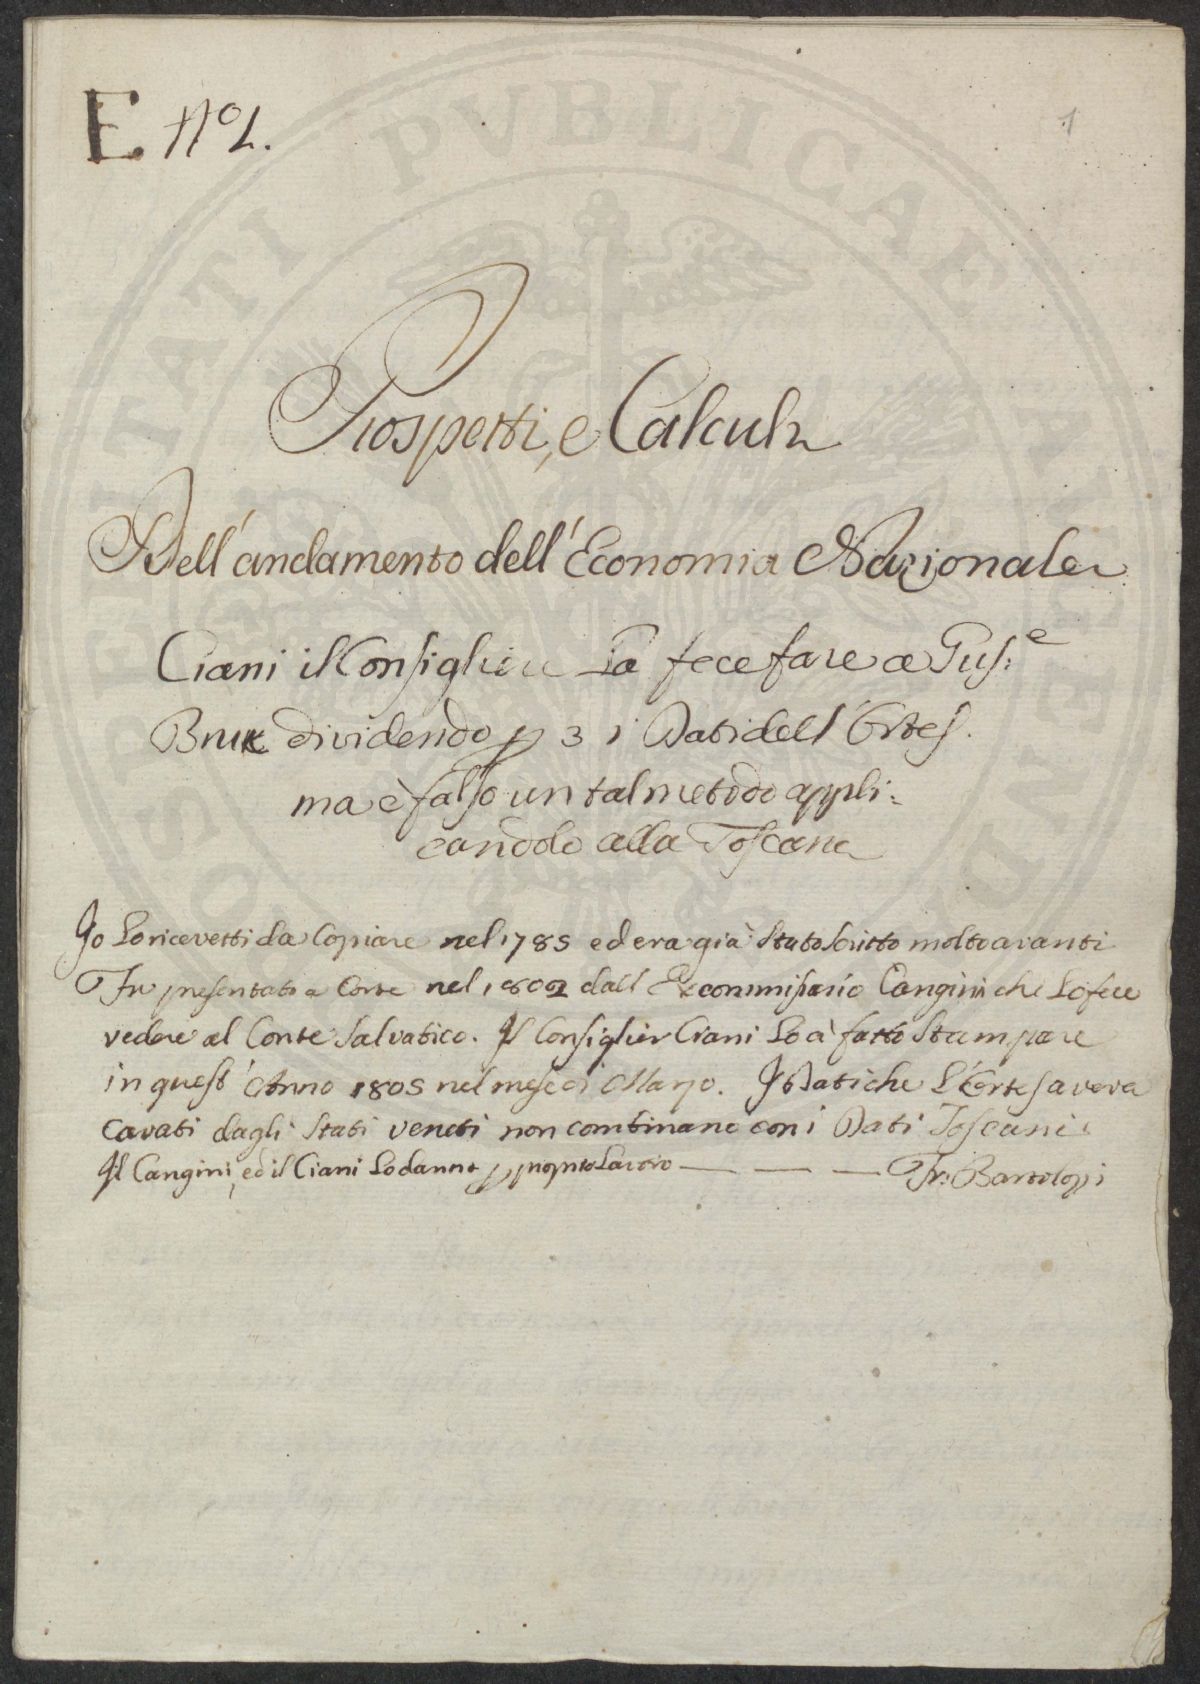 E N° 1.
1
Prospetti, e Calculi
Dell'andamento dell'Economia Nazionale
Ciani il Consiglier La fece fare a Gus:e
Bruk dividendo p 3 i Dati dell'Ortes.
ma è falso un tal metodo appli:
candolo alla Toscana
Io Lo ricevetti da Copiare nel 1785 ed era già stato scritto molto avanti
Fu presentato a Corte nel 1802 dall Ex commissario Cangini che Lo fece
vedere al Conte Salvatico. Il Consiglier Ciani Lo à fatto Stampare
in quest'Anno 1805 nel mese di Marzo. I Dati che L'Ortes aveva
Cavati dagli Stati veneti non combinano con i Dati Toscani
Il Cangini, ed il Ciani Lo danno p proprio Lavoro — — — Fr: Bartolozzi
PVBLICAE